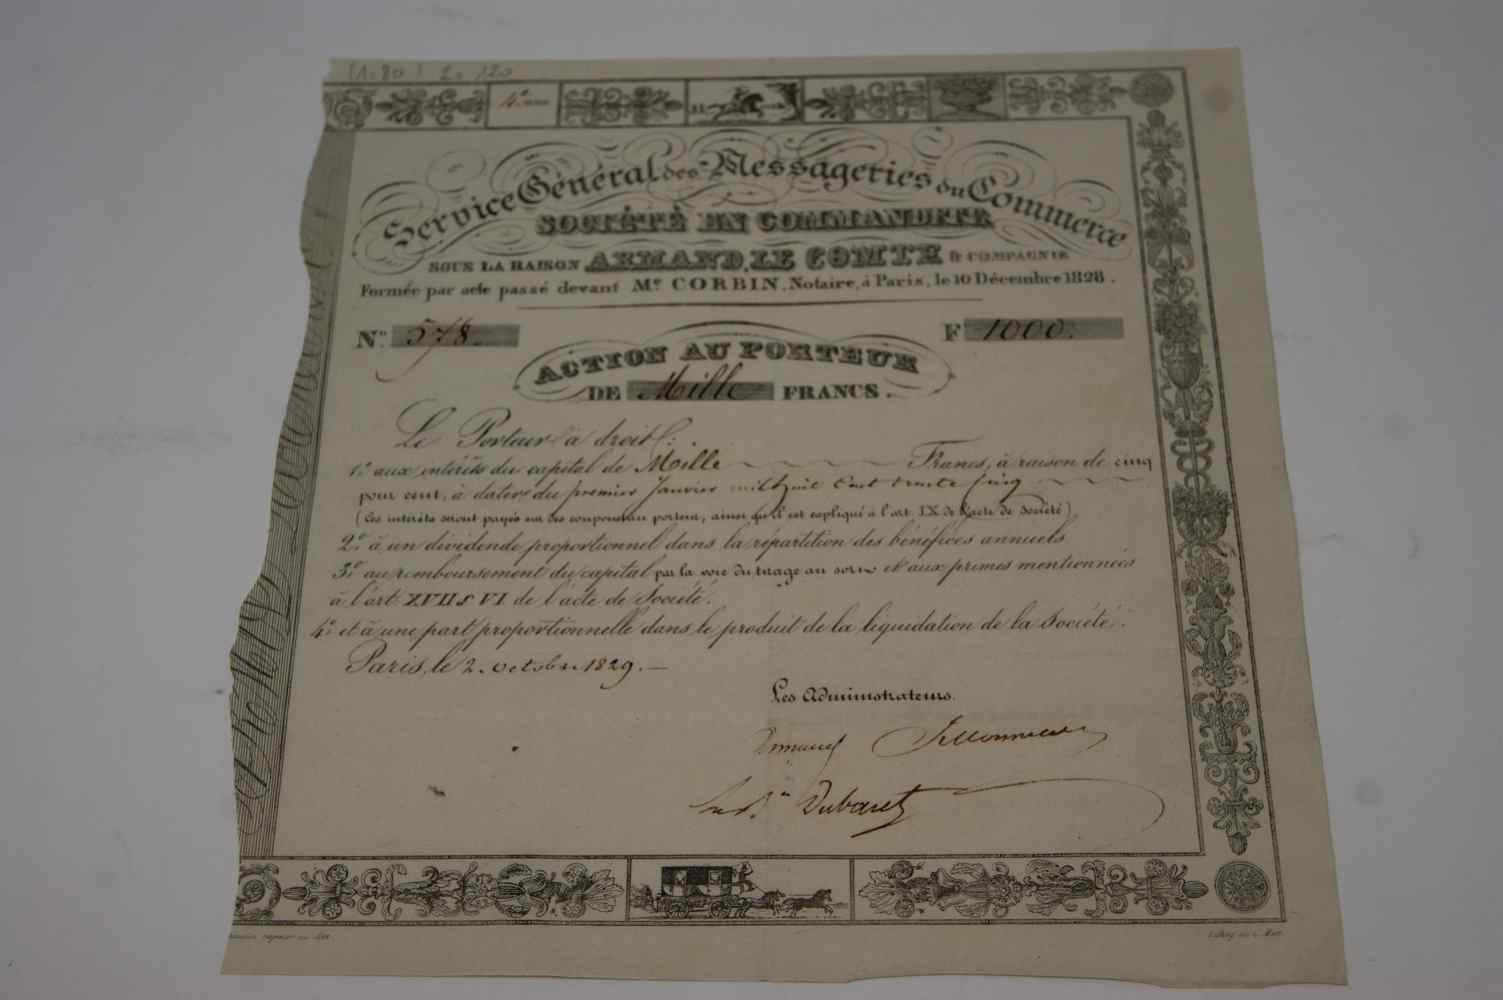 (1.80) 2. 120
4e
Service Général des Messageries du Commerce
SOCIÉTÉ EN COMMANDITE
SOUS LA RAISON ARMAND, LE COMTE & COMPAGNIE
Formée par acte passé devant Me CORBIN, Notaire, à Paris, le 10 Décembre 1828.
No. 578. F 1000.
ACTION AU PORTEUR
DE Mille FRANCS.
Le Porteur a droit:
1.° aux intérêts du capital de Mille Francs, à raison de cinq
pour cent, à dater du premier Janvier mil huit Cent trente Cinq
(Ces intérêts seront payés sur des coupons au porteur, ainsi qu'il est expliqué à l'art. IX de l'acte de Société)
2.° à un dividende proportionnel dans la répartition des bénéfices annuels
3.° au remboursement du capital par la voie du tirage au sort et aux primes mentionnées
à l'art. XVII § VI de l'acte de Société.
4.° et à une part proportionnelle dans le produit de la liquidation de la Société.
Paris, le 2. octobre 1829.
Les Administrateurs.
Dubaret